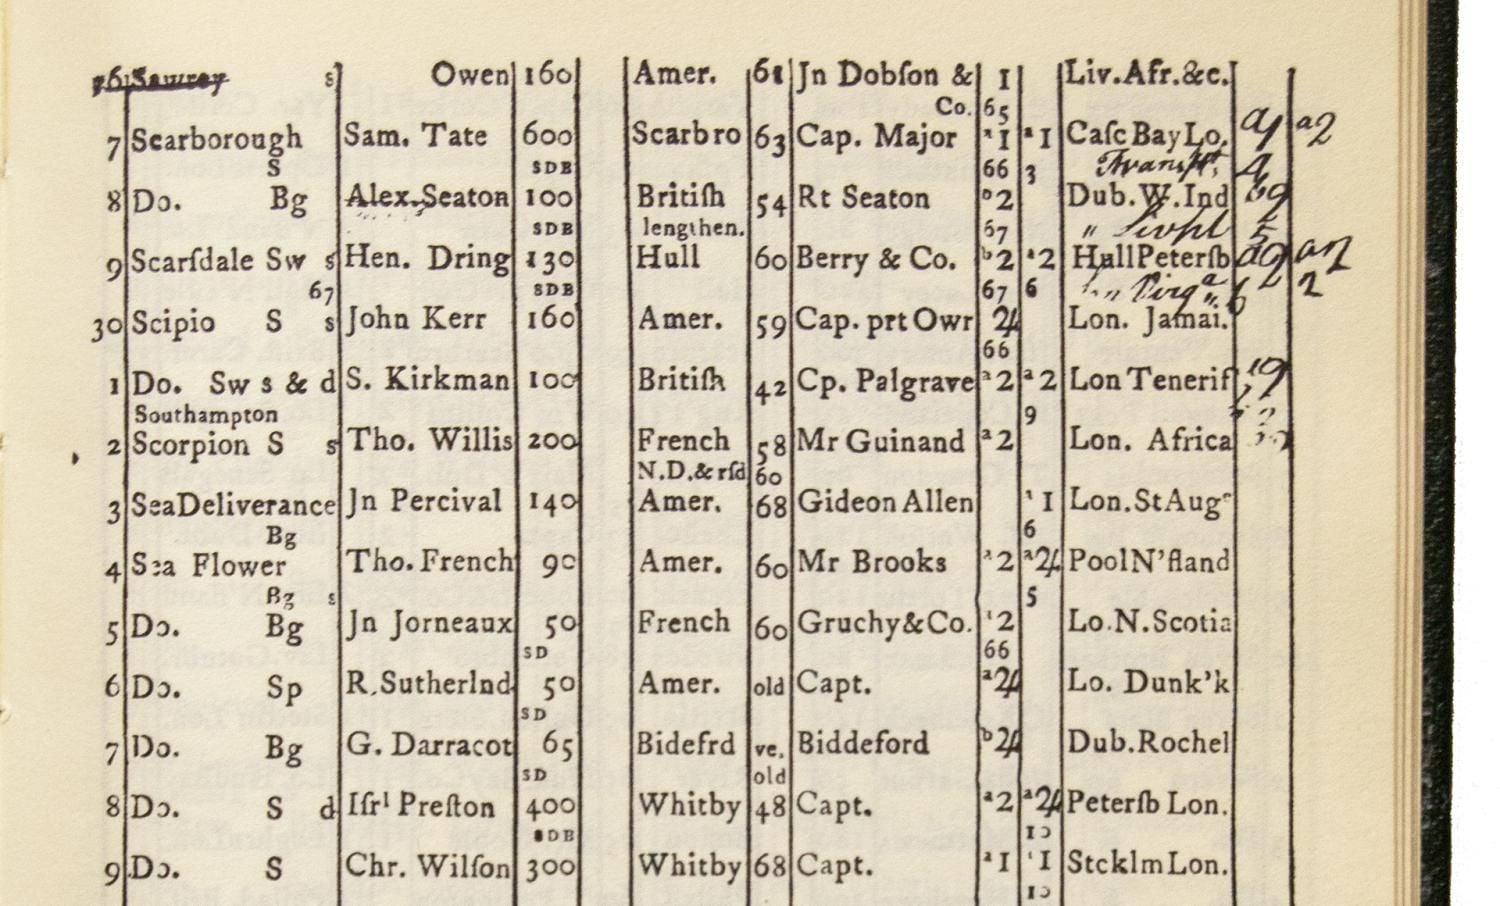 76 Sawrey s Owen 160 Amer. 61 Jn Dobſon & 1 Liv.Afr.&c.
Co. 65
7 Scarborough Sam. Tate 600 Scarbro 63 Cap. Major a1 a1 Caſc Bay Lo. a2
S SDB 66 3 Tranſpt
8 Do. Bg Alex. Seaton 100 Britiſh 54 Rt Seaton b2 Dub.W.Ind
SDB lengthen. 67 " Livpl
9 Scarſdale Sw s Hen. Dring 130 Hull 60 Berry & Co. b2 a2 HullPeterſb
67 SDB 67 6 " Virga 2
30 Scipio S s John Kerr 160 Amer. 59 Cap. prt Owr 24 Lon. Jamai.
66
1 Do. Sw s & d S. Kirkman 100 Britiſh 42 Cp. Palgrave a2 a2 Lon Tenerif
Southampton 9
2 Scorpion S s Tho. Willis 200 French 58 Mr Guinand a2 Lon. Africa
N.D.& rſd 60
3 SeaDeliverance Jn Percival 140 Amer. 68 Gideon Allen 1 Lon.StAuge
Bg 6
4 Sea Flower Tho. French 90 Amer. 60 Mr Brooks a2 a24 PoolN'fland
Bg s 5
5 Do. Bg Jn Jorneaux 50 French 60 Gruchy&Co. 2 Lo.N.Scotia
SD 66
6 Do. Sp R.Sutherlnd 50 Amer. old Capt. a24 Lo. Dunk'k
SD
7 Do. Bg G. Darracot 65 Bidefrd ve. Biddeford b24 Dub.Rochel
SD old
8 Do. S d Iſrl Preſton 400 Whitby 48 Capt. a2 a24 Peterſb Lon.
SDB 10
9 Do. S Chr. Wilſon 300 Whitby 68 Capt. a1 1 StcklmLon.
10